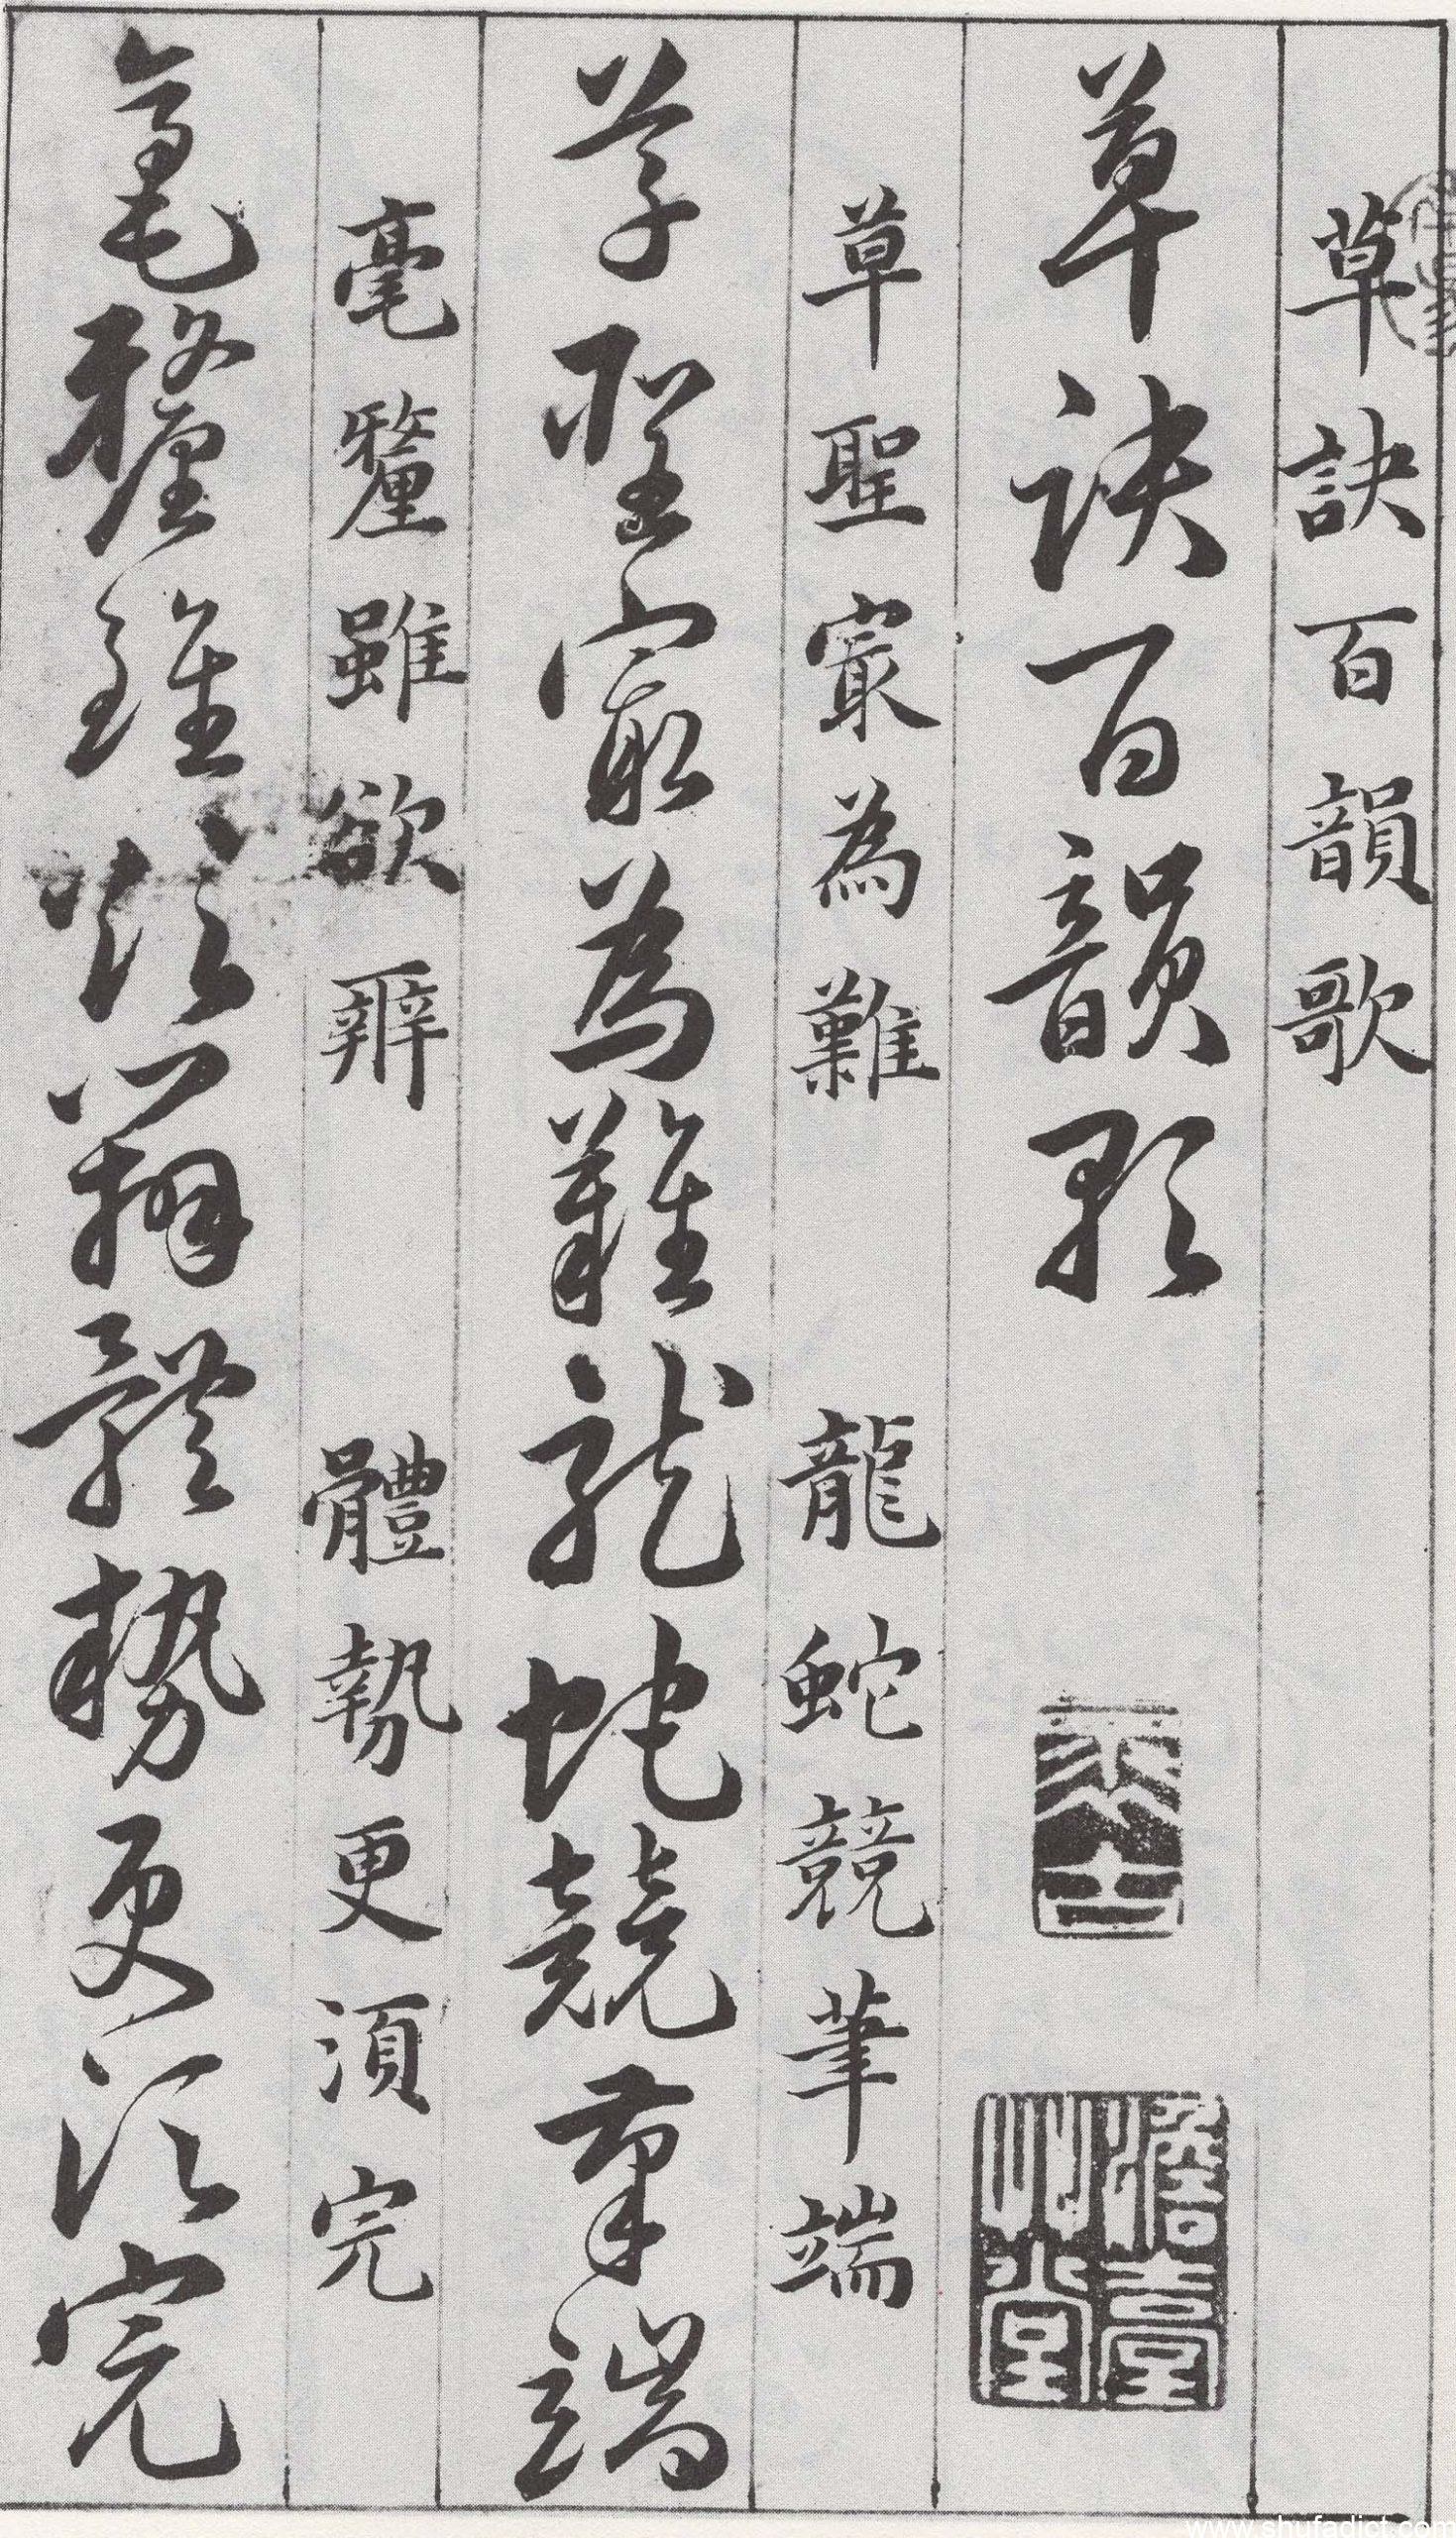 草訣百韻歌
草訣百韻歌
草聖冣為難 龍蛇競筆端
草聖冣為難龍蛇競筆端
毫釐雖欲辨 體勢更須完
毫釐雖欲辨體勢更須完
www.shufadict.com